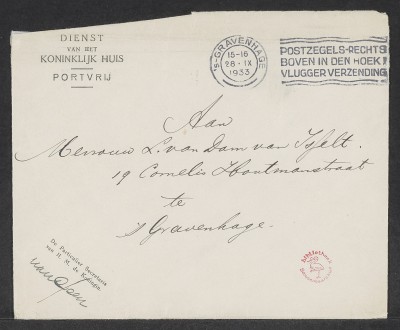 DIENST
VAN HET
KONINKLIJK HUIS
PORTVRIJ
's-GRAVENHAGE
15-16
28·IX
1933
POSTZEGELS-RECHTS
BOVEN IN DEN HOEK
VLUGGER VERZENDING
Aan
Mevrouw L. van Dam van Isselt.
19 Cornelis Houtmanstraat
te
's Gravenhage.
De Particulier Secretaris
van H. M. de Koningin